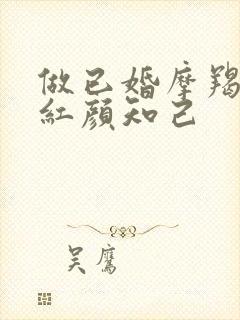 做已婚摩羯
紅顔知己
吴鷹